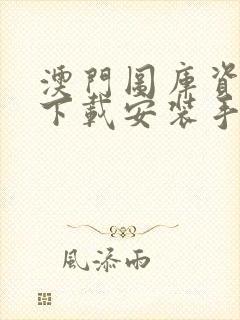 澳門圖庫資
下載安裝手
風添雨